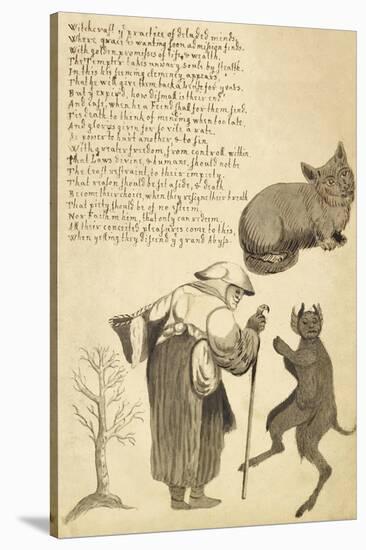 Witchcraft yͤ practice of deluded minds,
Where grace is wanting soon admission finds.
With golden promises of life, & wealth,
The Tempter takes unwary souls by stealth.
In this his seeming clemency appears
That he will give them back a bribe for years.
But yͤ expir'd, how dismal is their end
And last, when he a Fiend shall for them send.
Tis death to think of mending when too late,
And glories given for so vile a rate.
As power to hurt another, & to sin
With greater freedom, from controll within.
That Laws divine, & humane, should not be
The least restraint, to their impiety.
That reason should be set aside, & death
Become their choice, when they resigne their breath
That piety should be of no esteem,
Nor Faith in him, that only can redeem,
All their conceited pleasures come to this,
When yelling they discend yͤ grand Abyss.